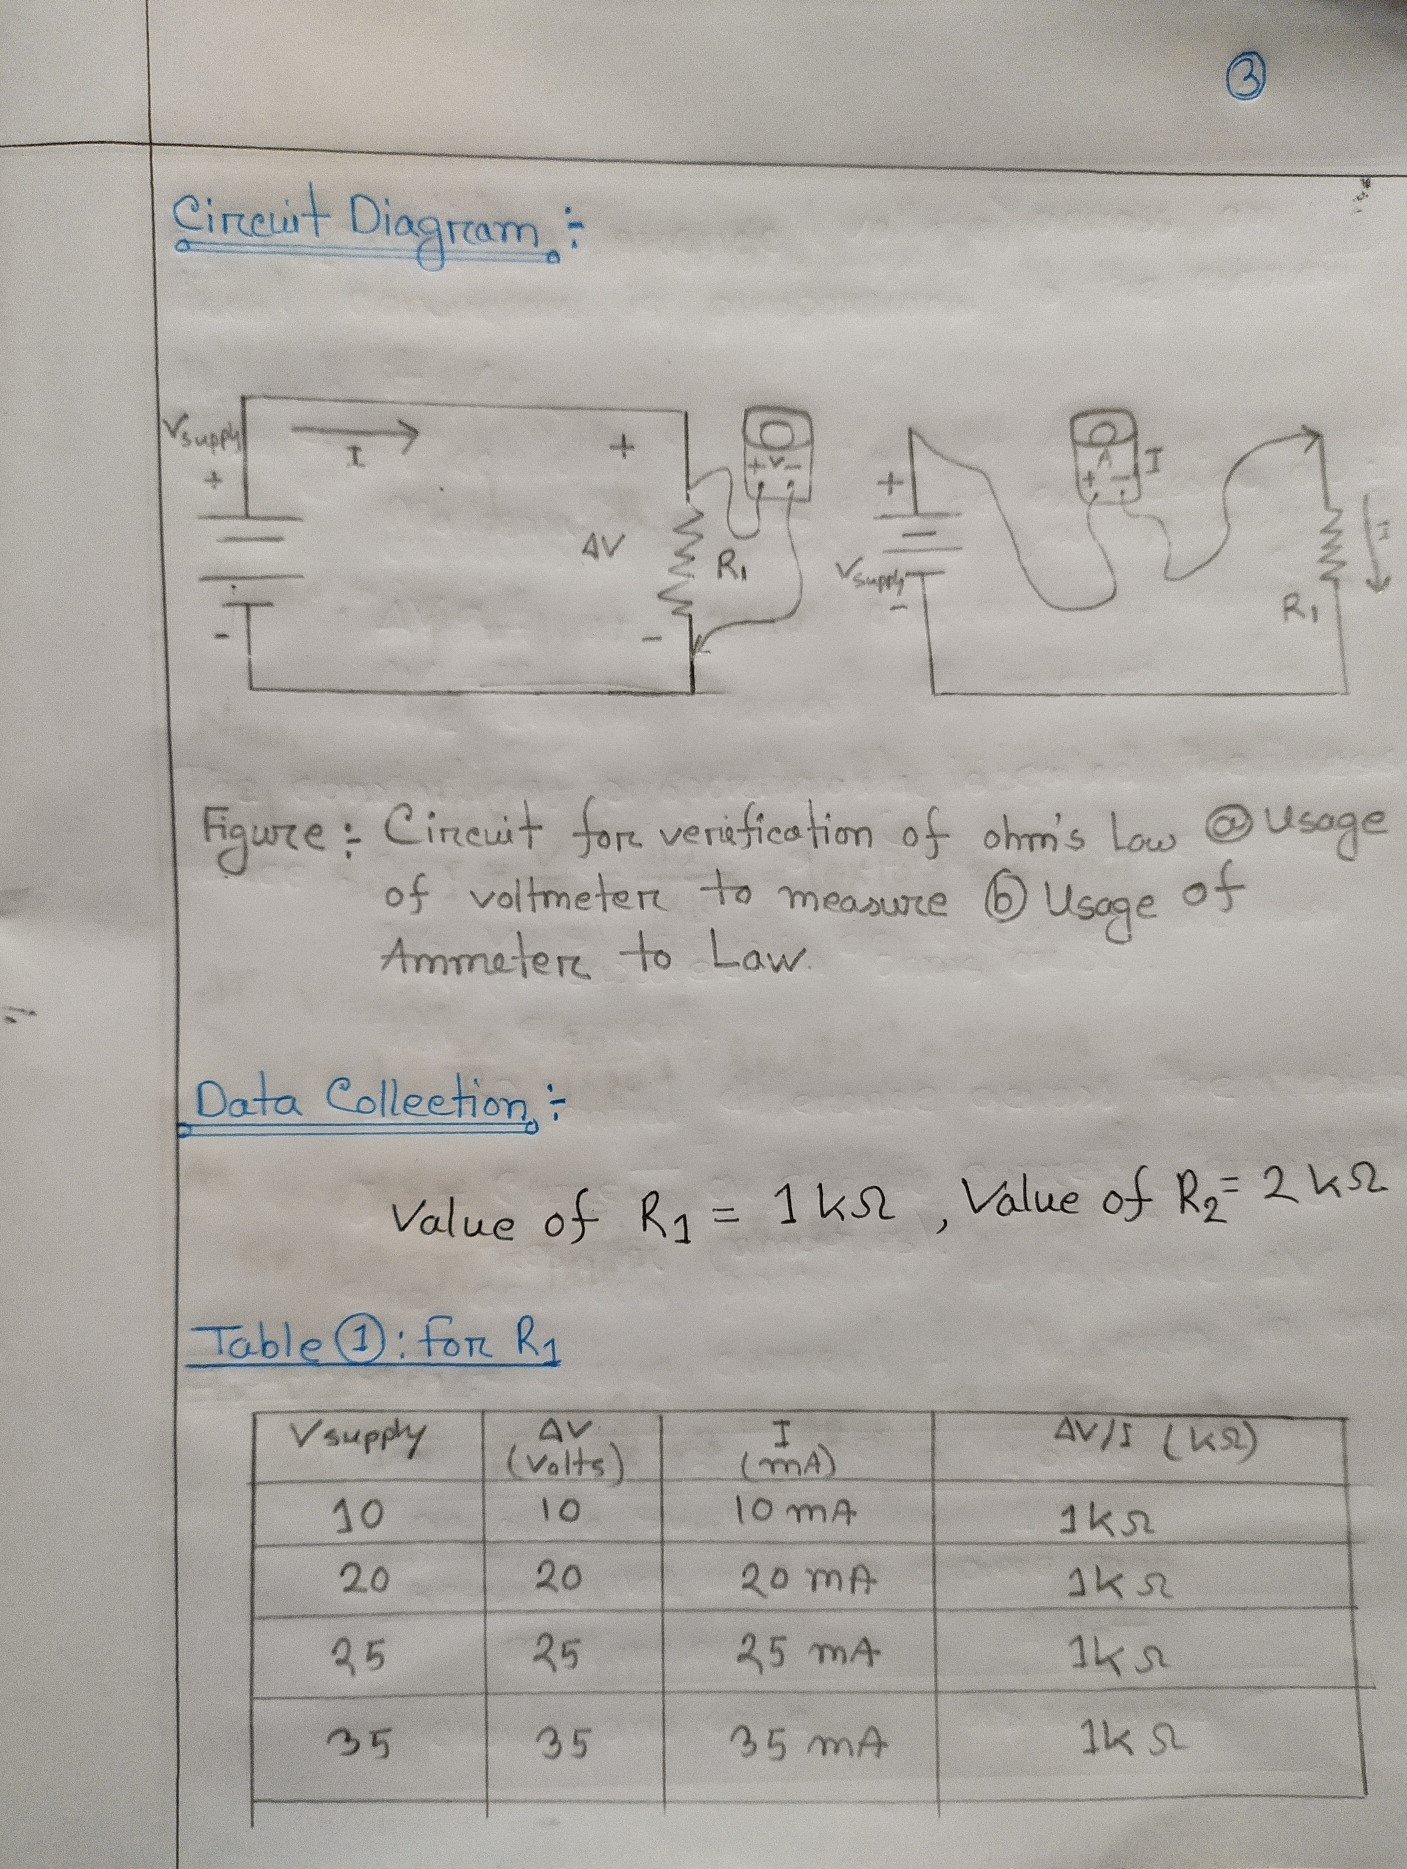 ③
Circuit Diagram ÷
Vsupply
I
+
+
-
ΔV
-
R₁
+ V -
+
Vsupply
-
A
+ -
I
R₁
Figure ÷ Circuit for verification of ohm's Law ⓐ Usage
of voltmeter to measure ⓑ Usage of
Ammeter to Law.
Data Collection ÷
Value of R₁ = 1 kΩ , Value of R₂ = 2 kΩ
Table ① : for R₁
Vsupply ΔV (Volts) I (mA) ΔV/I (kΩ)
10 10 10 mA 1kΩ
20 20 20 mA 1kΩ
25 25 25 mA 1kΩ
35 35 35 mA 1kΩ